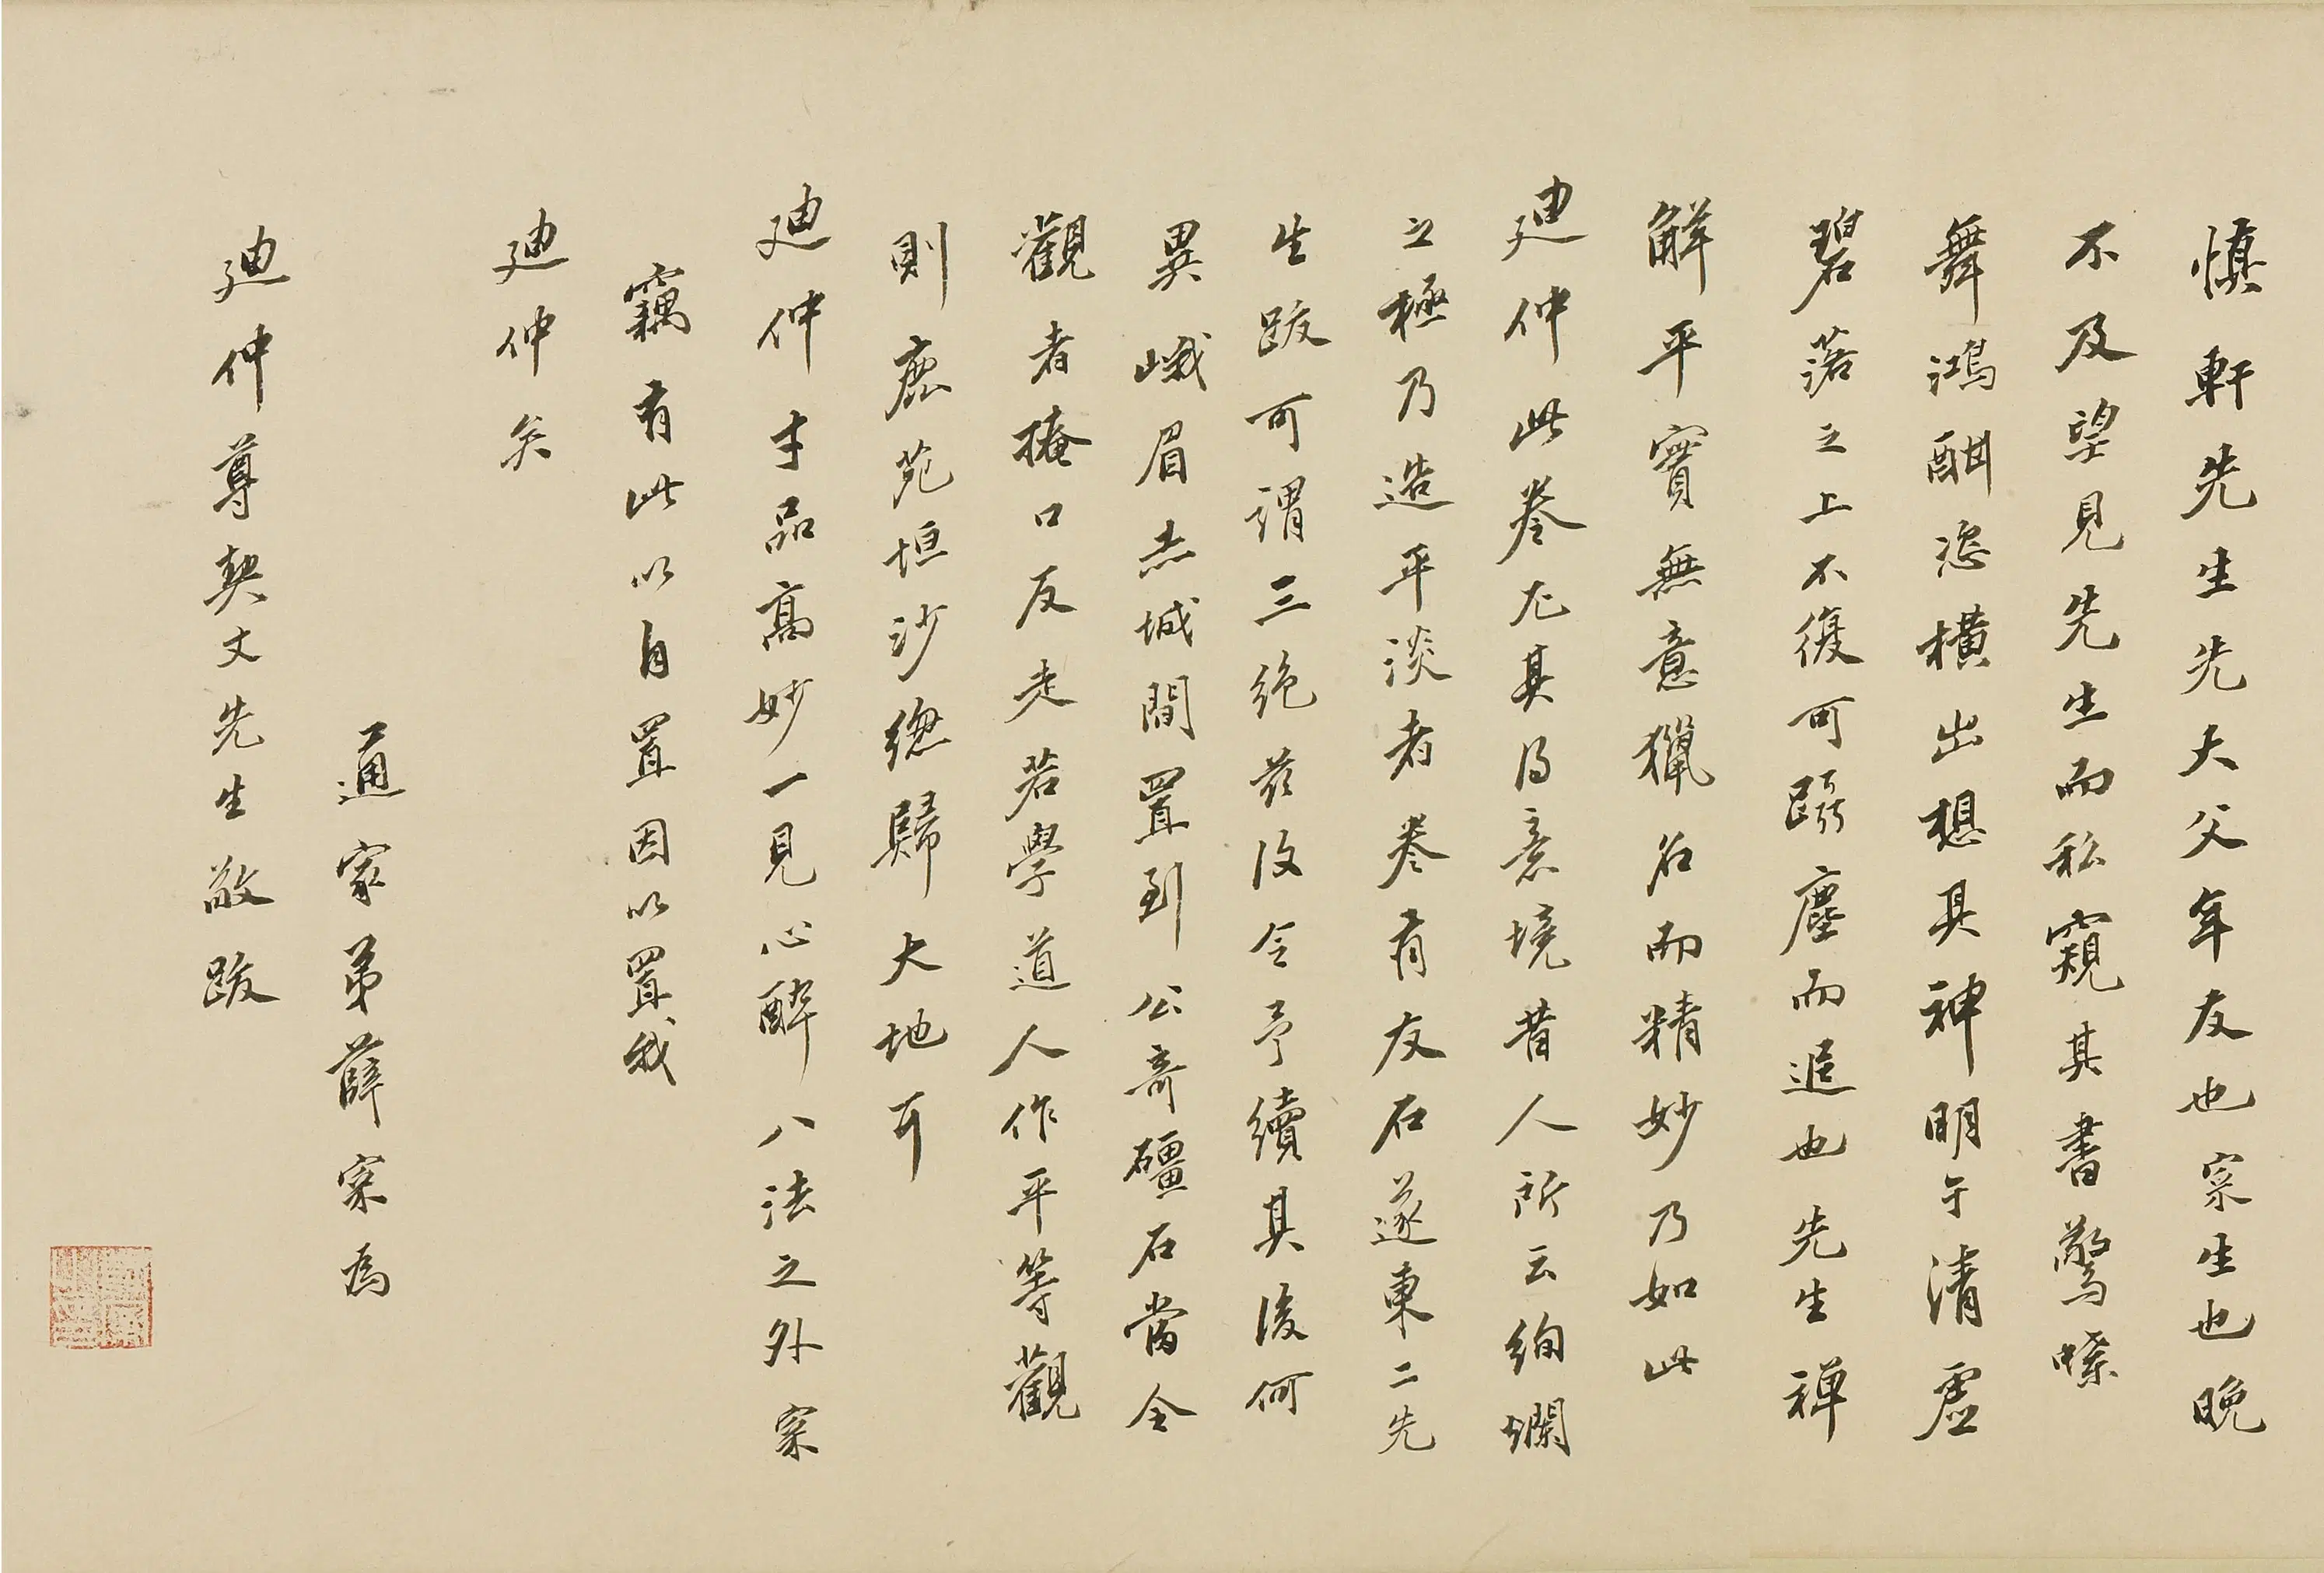 慎軒先生先大父年友也寀生也晚
不及望見先生而私窺其書驚嗥
舞鴻酣恣橫出想其神明于清虛
碧落之上不復可躡塵而追也先生禪
解平實無意獵名而精妙乃如此
廸仲此卷尤其得意境昔人所云絢爛
之極乃造平淡者卷有友石遂東二先
生跋可謂三絕茲復令予續其後何
異峨眉赤城間置到公奇礓石當令
觀者掩口反走若學道人作平等觀
則鹿苑垣沙總歸大地耳
廸仲才品高妙一見心醉八法之外寀
竊有此以自置因以置我
廸仲矣
通家弟薛寀為
廸仲尊契丈先生敬跋